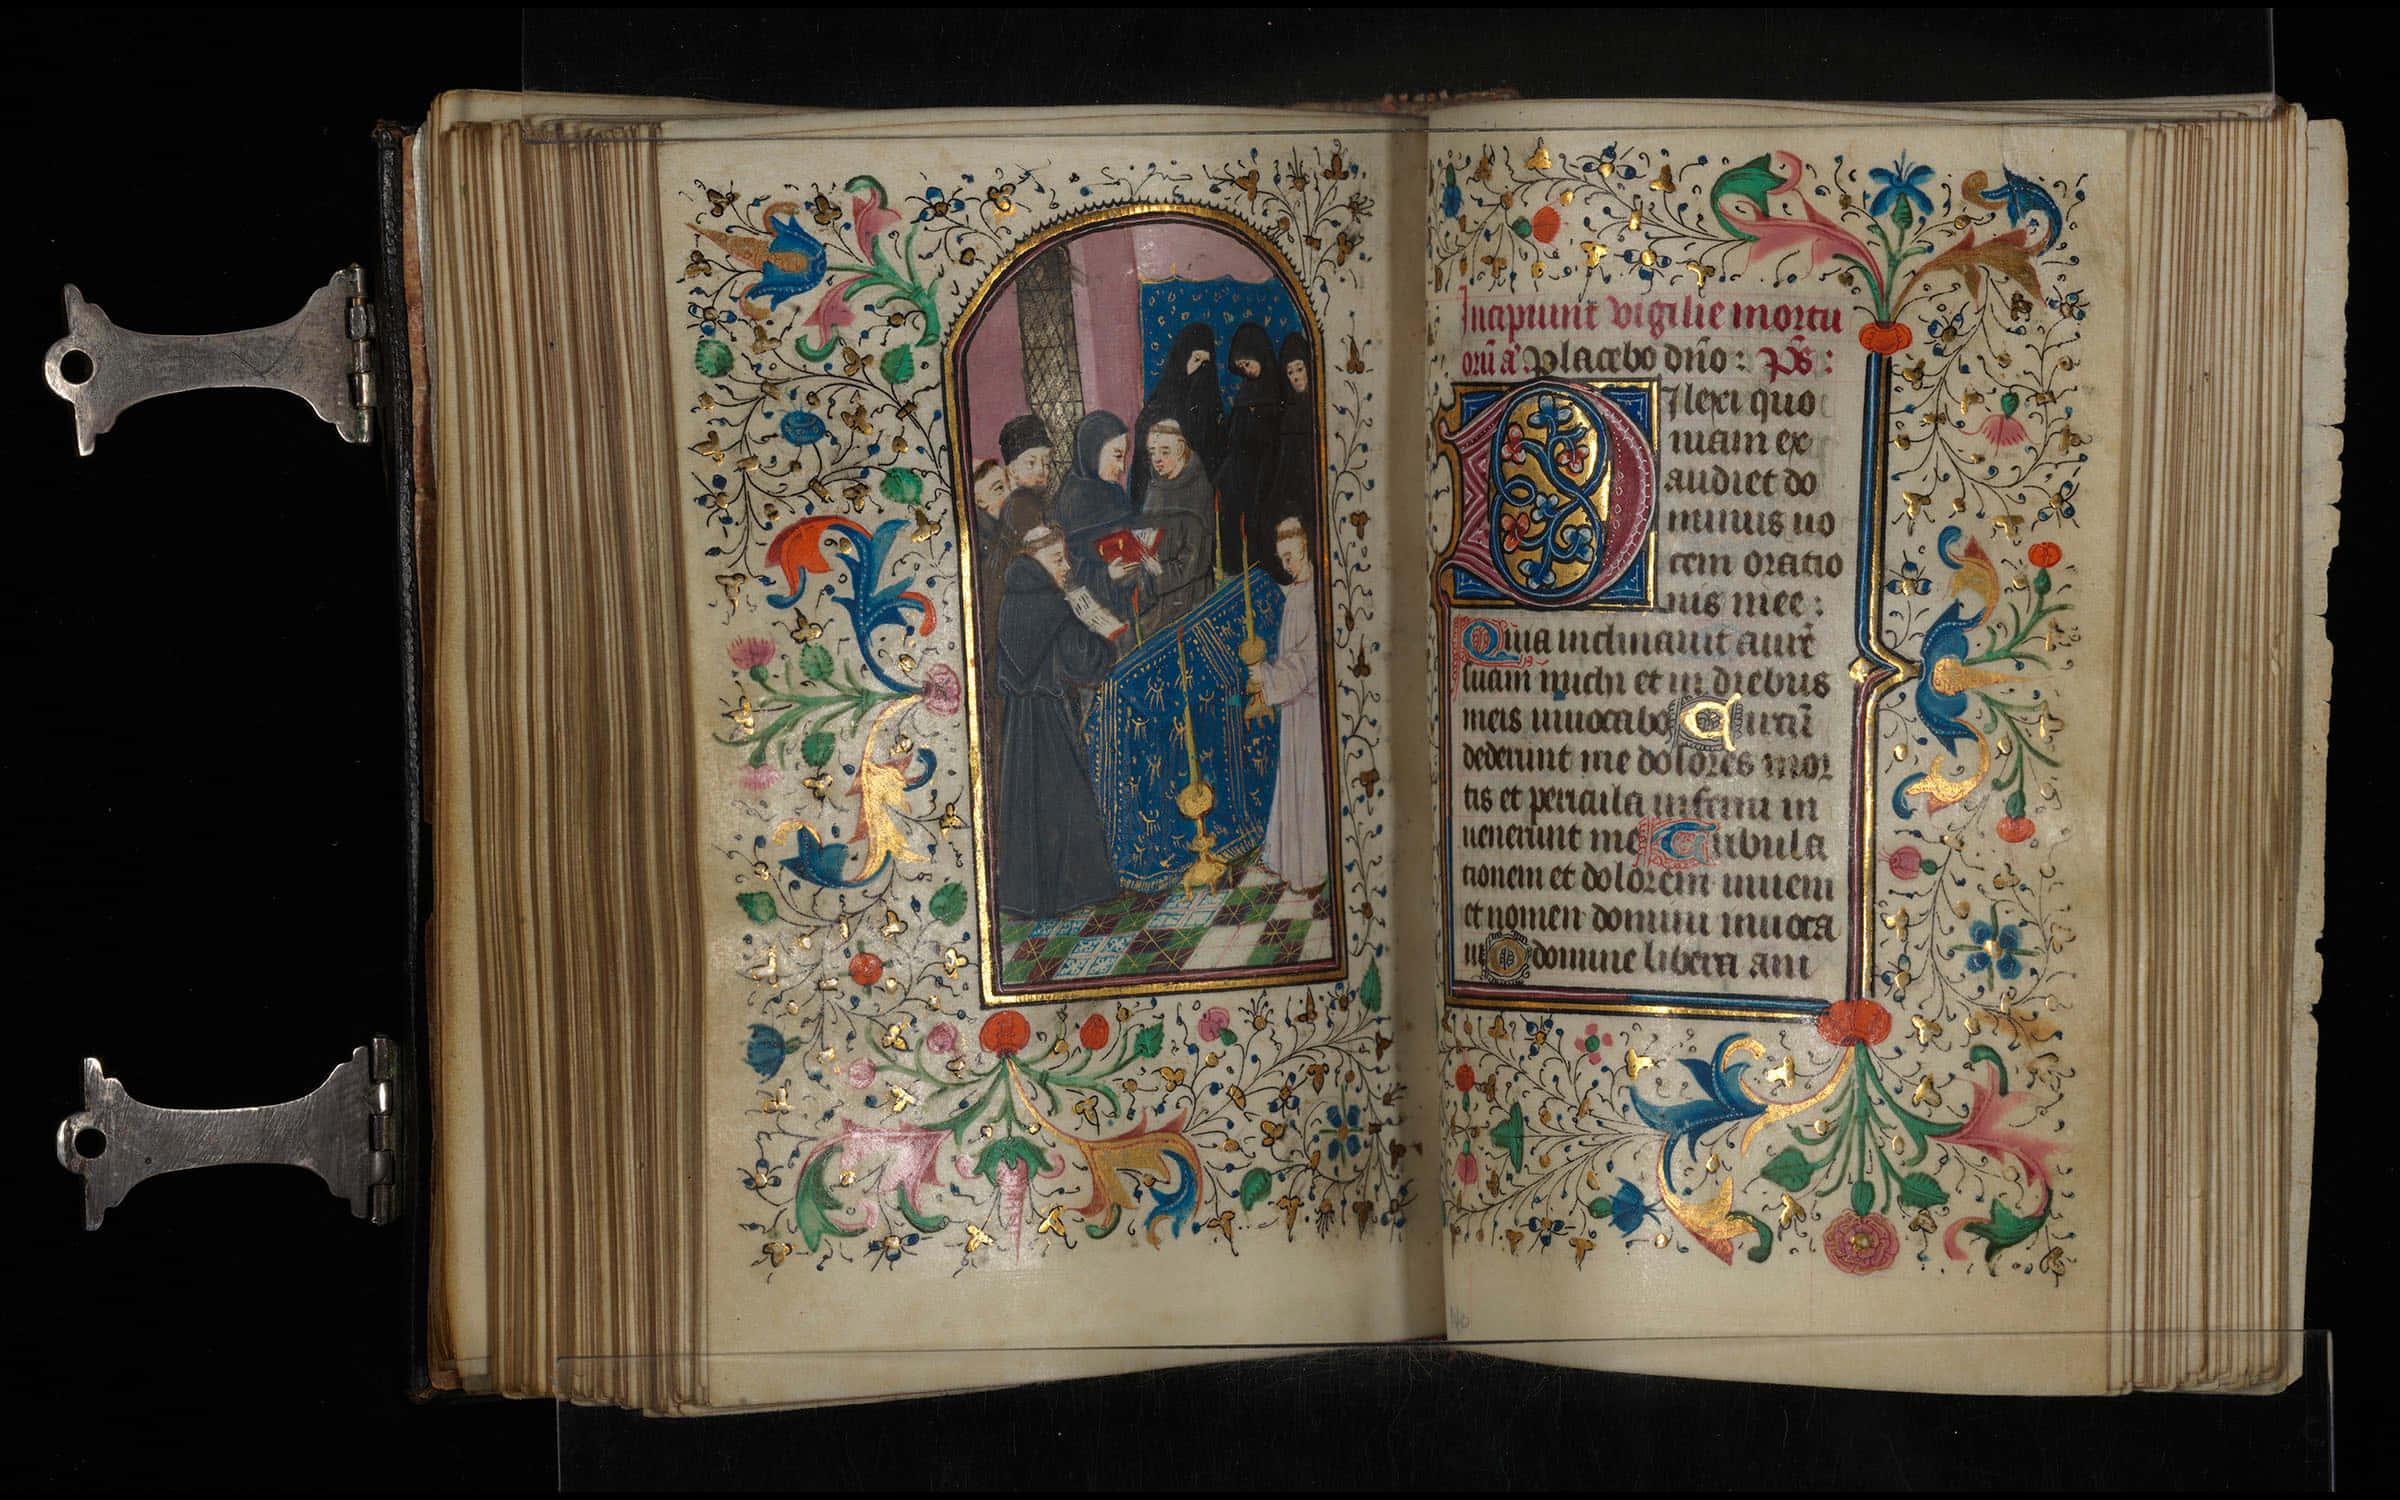 Incipiunt vigilie mortu
orũ añ Placebo dño: p̃s:
Dilexi quo
niam ex
audiet do
minus uo
cem oratio
nis mee:
Quia inclinauit aurẽ
suam michi et in diebus
meis inuocabo Circũ
dederunt me dolores mor
tis et pericula inferni in
uenerunt me Tribula
tionem et dolorem inueni
et nomen domini inuoca
ui O domine libera ani